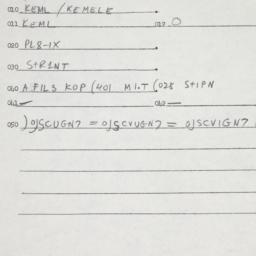 010 KEML / KEMELE
011 KEML 012 O
020 PL8-IX
030 StR1NT
040 A FIL3 KOP (401 MI.T (028 StIPN
041 — 042 —
050 ) OJSCUGN7 = OJSCVUGN7 = OJSCVIGN7